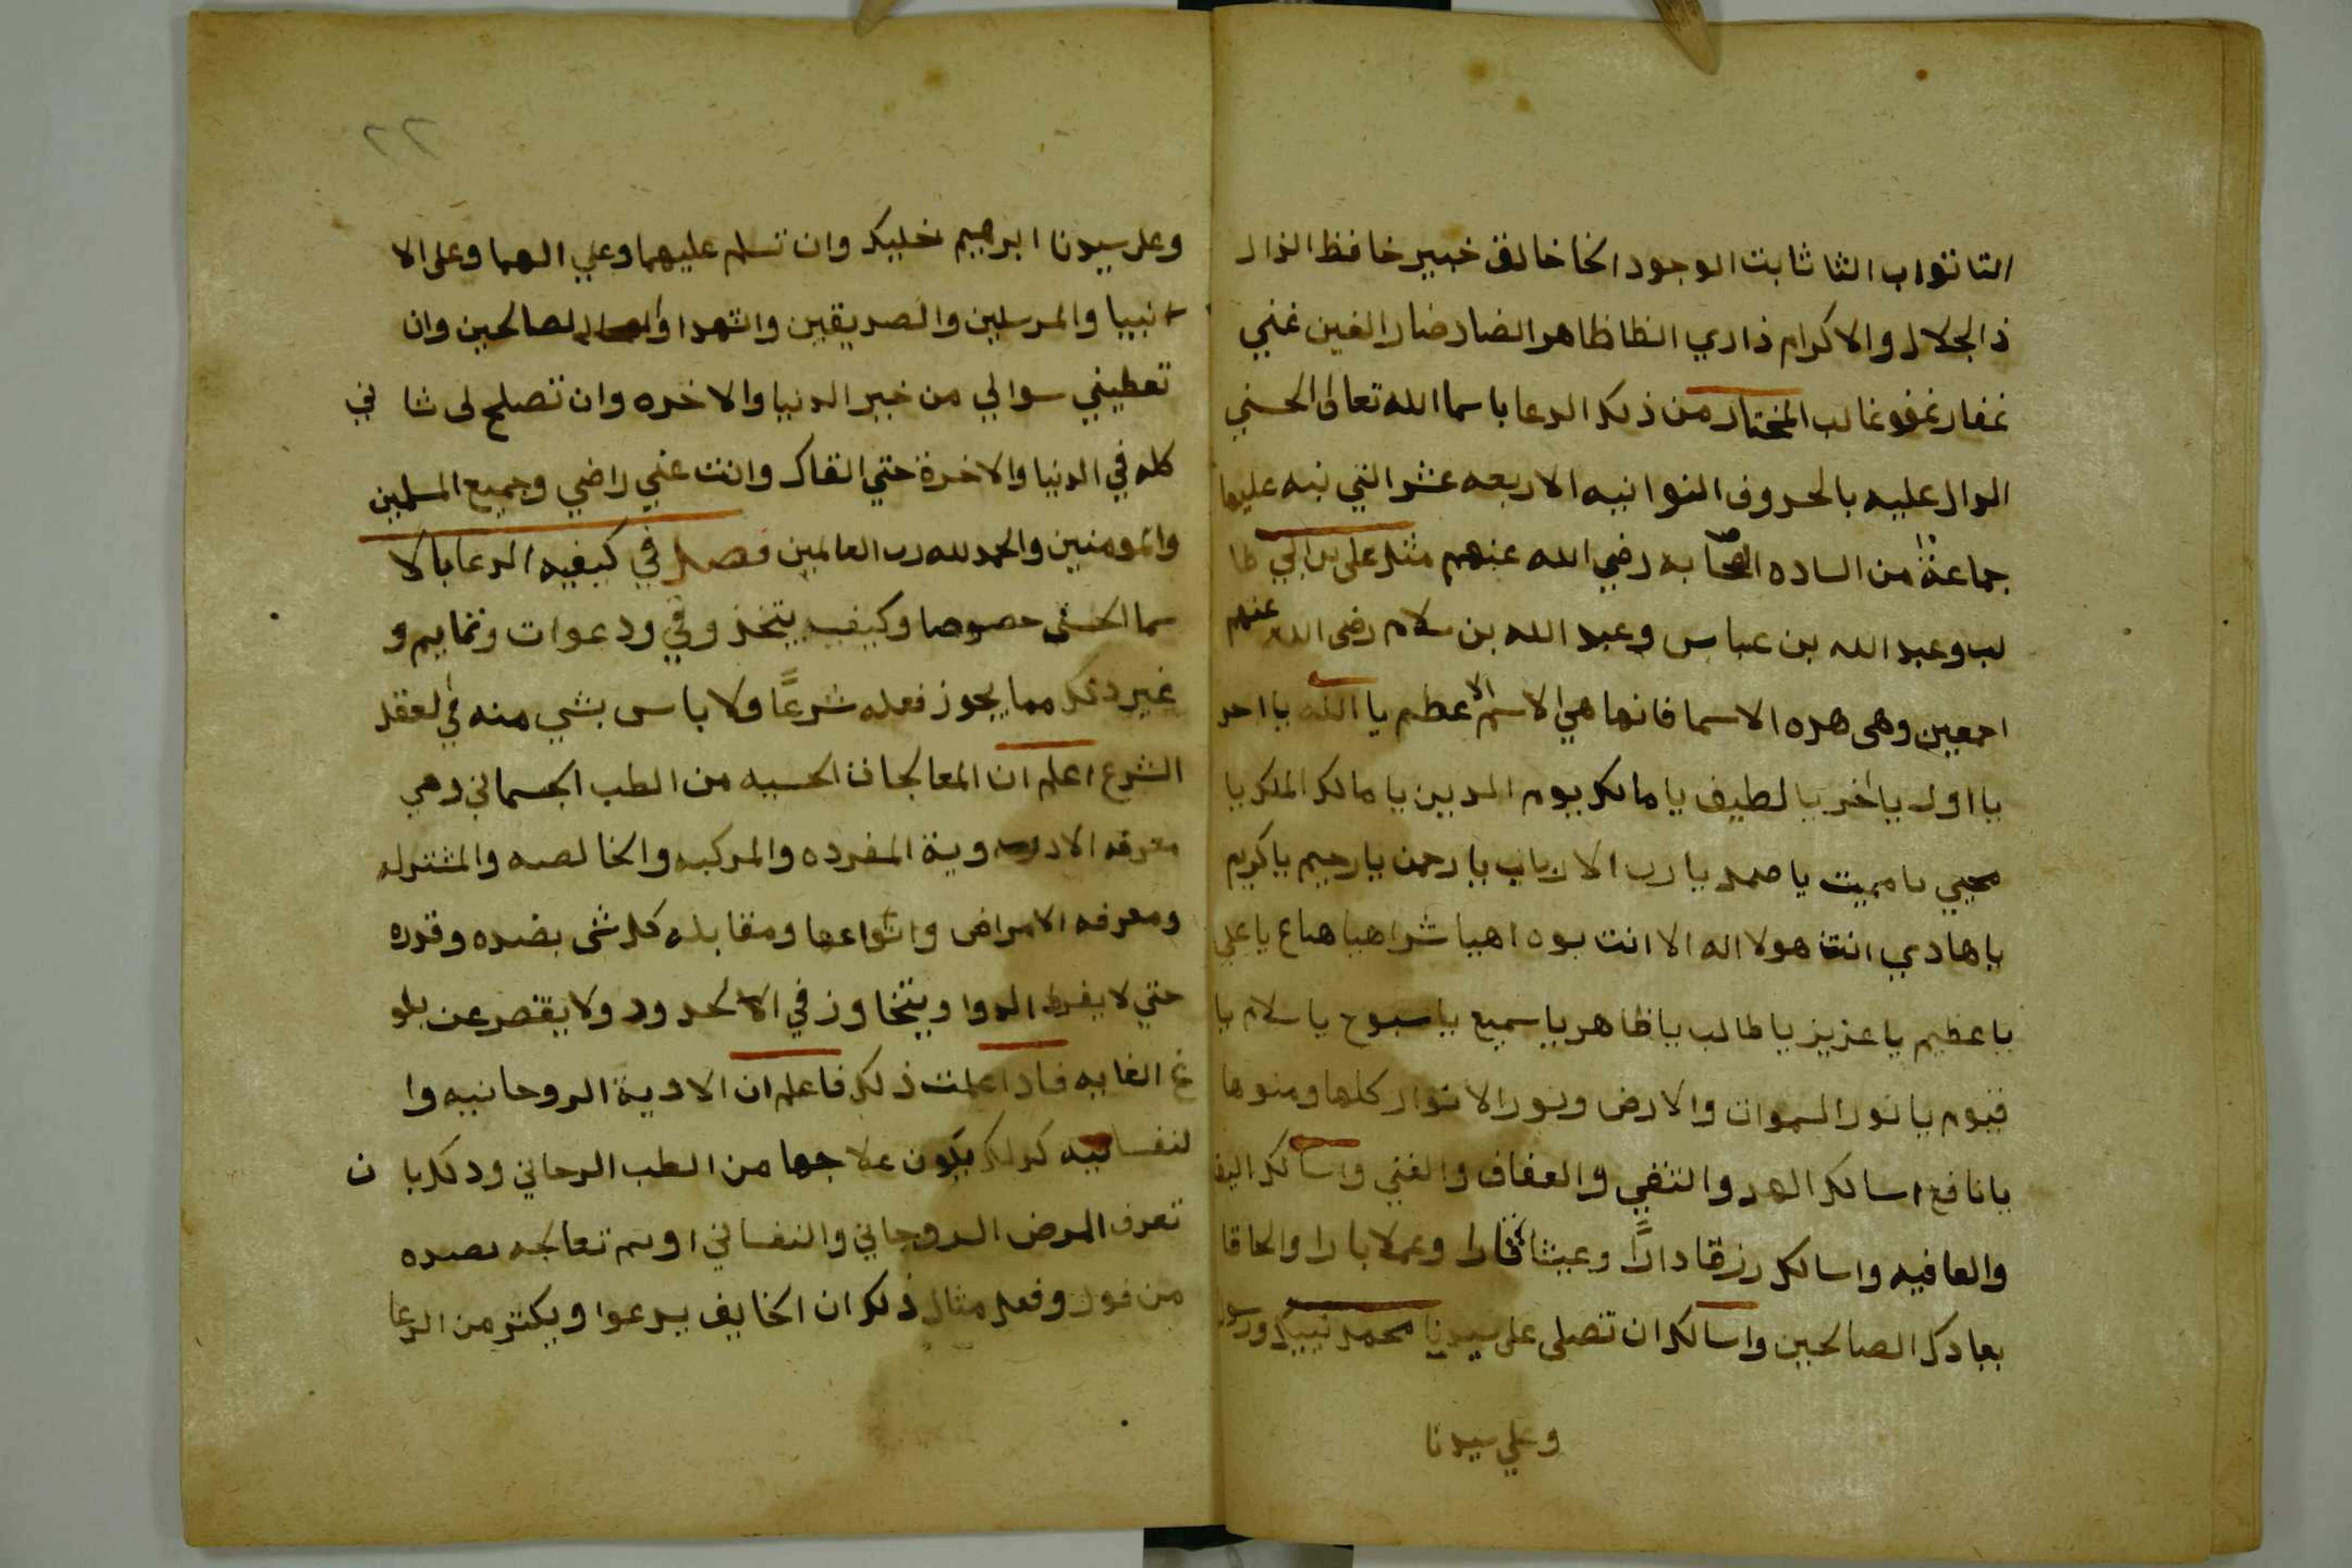 التا تواب الثا ثابت الوجود الخا خالق خبير خافظ الذال
ذ الجلال والاكرام ذاري الظا ظاهر الضار ضار الغين غني
غفار غفو غالب المختار من ذلك الدعا باسما الله تعالى الحسني
الدال عليه بالحروف النوانيه الاربعه عشر التي نبه عليها
جماعة من الساده الصحابه رضي الله عنهم مثل على بن ابي طا
لب وعبد الله بن عباس وعبد الله بن سلام رضى الله عنهم
اجمعين وهى هده الاسما فانها هي الاسم الاعظم يا الله يا احد
يا اول يا اخر يا لطيف يا مالك يوم الدين يا مالك الملك يا
محيي يا مميت يا صمد يا رب الارباب يا رحمن يا رحيم يا كريم
يا هادي انت هو لا اله الا انت يوه اهيا شراهيا هاع يا علي
يا عظيم يا عزيز يا طالب يا ظاهر يا سميع يا سبوح يا سلام يا
قيوم يا نور السموات والارض ونور الانوار كلها ومنوها
يا نافع اسالك الهد والتقي والعفاف والغني واسالك اليق
والعافيه واسالك رزقا دارًا وعيشا قارا وعملا بارا والحاقا
بعبادك الصالحين واسالك ان تصلى على سيدنا محمد نبيك ورسول
وعلي سيدنا
٢٢
وعلى سيدنا ابرهيم خليك وان تسلم عليهما وعلي الهما وعلى الا
نبيا والمرسلين والصديقين والشهدا والصالحين وان
تعطيني سوالي من خير الدنيا والاخره وان تصلح لى شا ني
كله في الدنيا والاخرة حتي القاك وانت عني راضي وجميع المسلمين
والمومنين والحمد لله رب العالمين فصل في كيفيه الدعا بالا
سما الحسنى خصوصا وكيفيه يتخذ وفي ودعوات وتمايم و
غير ذلك مما يجوز فعله شرعًا ولا باس بشي منه في لعقد
الشرع اعلم ان المعالجات الحسيه من الطب الجسماني وهي
معرفه الادوية المفرده والمركبه والخالصه والمشتركه
ومعرفه الامراض وانواعها ومقابله كل شى بضده وقدره
حتي لا يفرط الدوا ويتخاوز في الا لحدود ولا يقصر عن بلو
غ الغايه فادا علمت ذلك فاعلم ان الادوية الروحانيه وا
لنفسانيه كدلك يكون علاجها من الطب الرحاني ودلك با ن
تعرف المرض الروحاني والنفساني اوسم تعالجه بضده
من قول وفعل مثال ذلك ان الخايف يدعوا ويكثر من الدعا